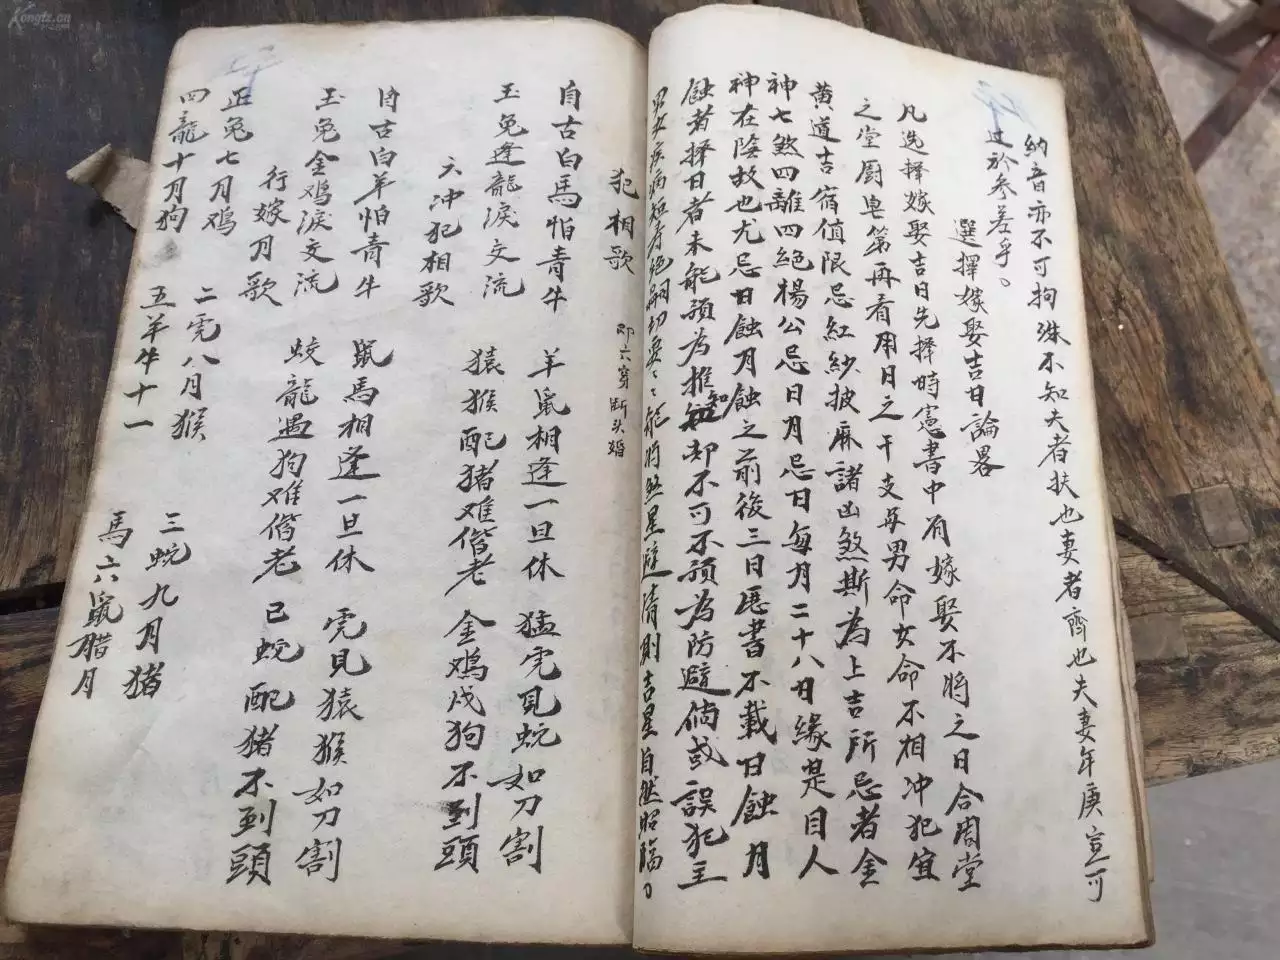 納音亦不可拘殊不知夫者扶也妻者齊也夫妻年庚豈可
过於參差乎。
選擇嫁娶吉日論畧
凡选擇嫁娶吉日先擇時憲書中有嫁娶不將之日合周堂
之堂厨皂第再看用日之干支与男命女命不相冲犯宜
黄道吉宿值限忌紅紗披麻諸凶煞斯為上吉所忌者金
神七煞四離四絕楊公忌日月忌日每月二十八日緣是目人
神在陰故也尤忌日蝕月蝕之前後三日曆書不載日蝕月
蝕者擇日者未能預為推知却不可不預為防避倘或誤犯主
男女疾病短寿絕嗣切要々能將煞星避清則吉星自然昭臨。
犯相歌 即六穿断头婚
自古白馬怕青牛 羊鼠相逢一旦休 猛虎見蛇如刀割
玉兔逢龍淚交流 猿猴配猪难偕老 金鸡戌狗不到頭
六冲犯相歌
自古白羊怕青牛 鼠馬相逢一旦休 虎見猿猴如刀割
玉兔金鸡淚交流 蛟龍遇狗难偕老 巳蛇配猪不到頭
行嫁月歌
正兔七月鸡 二虎八月猴 三蛇九月猪
四龍十月狗 五羊牛十一 馬六鼠腊月
Kongfz.cn